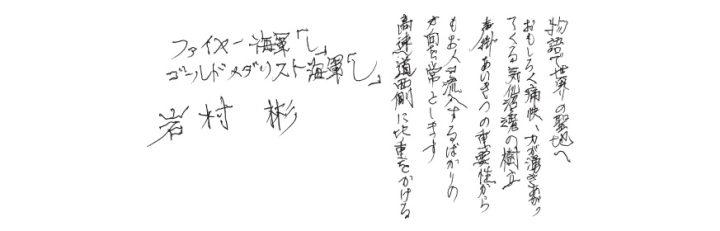 物語で世界の聖地へ
おもしろく痛快、力が湧きあがっ
てくる気仙沼港の樹立
声掛あいさつの重要性から
もお人は流入するばかりの
方面を常とします
高速道西側に比重をかける
ファイヤー海軍「し」
ゴールドメダリスト海軍「し」
岩村 彬